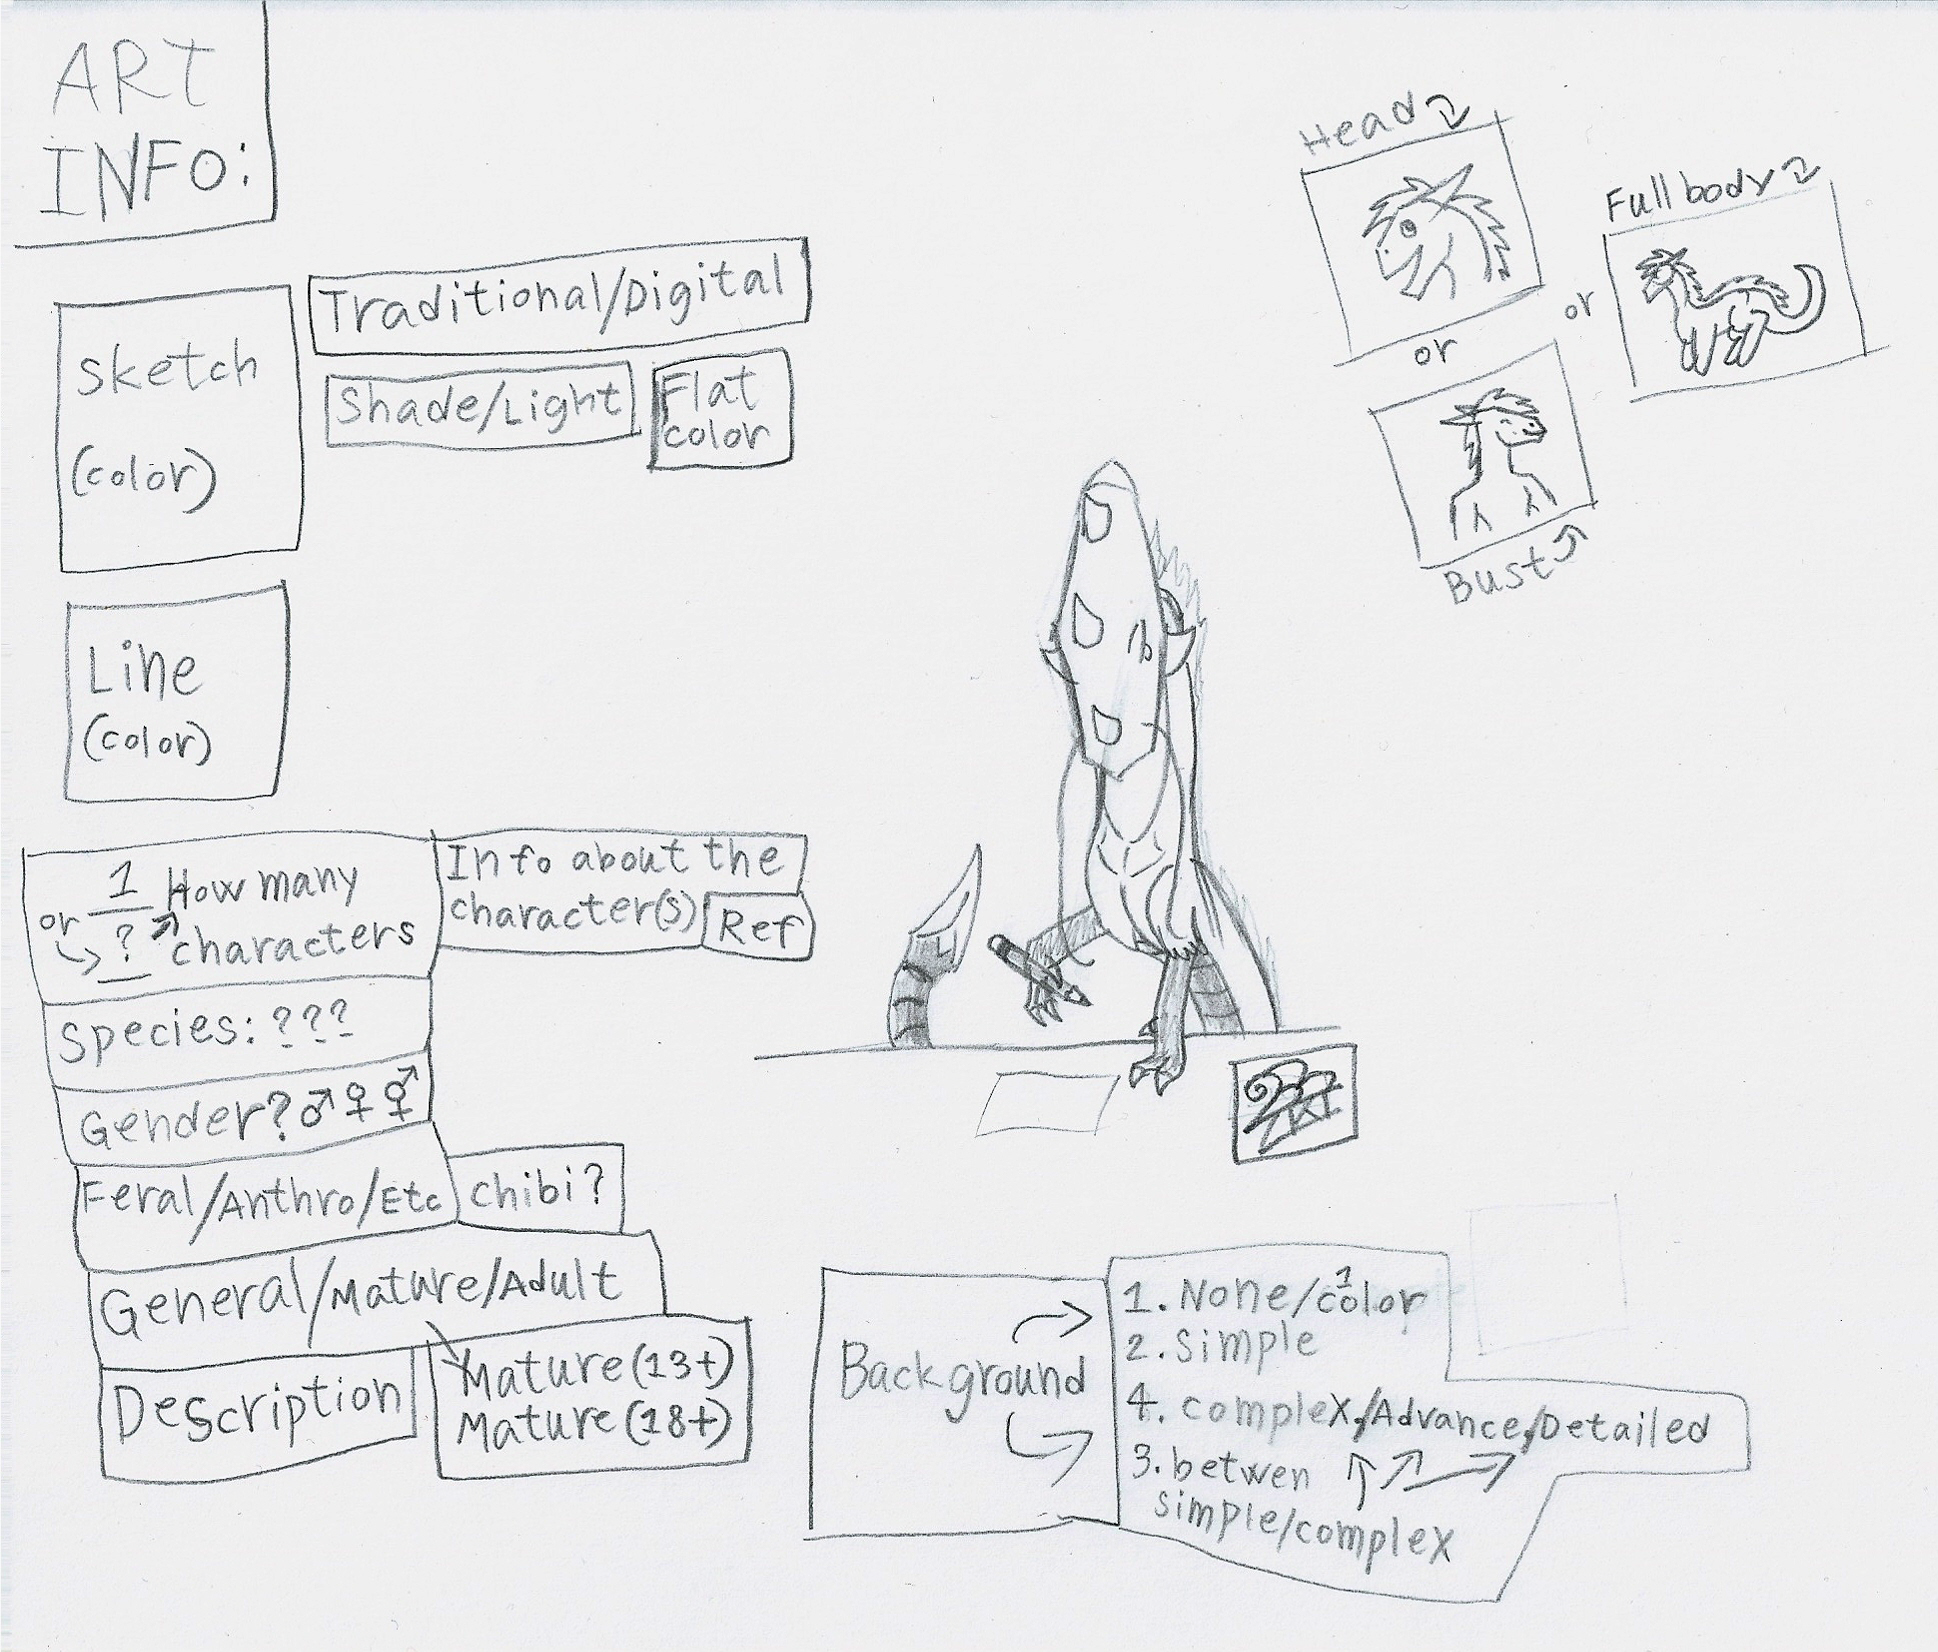 ART
INFO:
Traditional/Digital
Sketch
(color)
Shade/Light
Flat
color
Line
(color)
Head
Full body
or
or
Bust
1 How many
or ? characters
Info about the
character(s)
Ref
Species: ???
Gender? ♂ ♀ ⚥
Feral/Anthro/Etc
chibi?
General/Mature/Adult
Description
Mature (13+)
Mature (18+)
Background
1. None/1 color
2. Simple
4. complex/Advance/Detailed
3. betwen
simple/complex